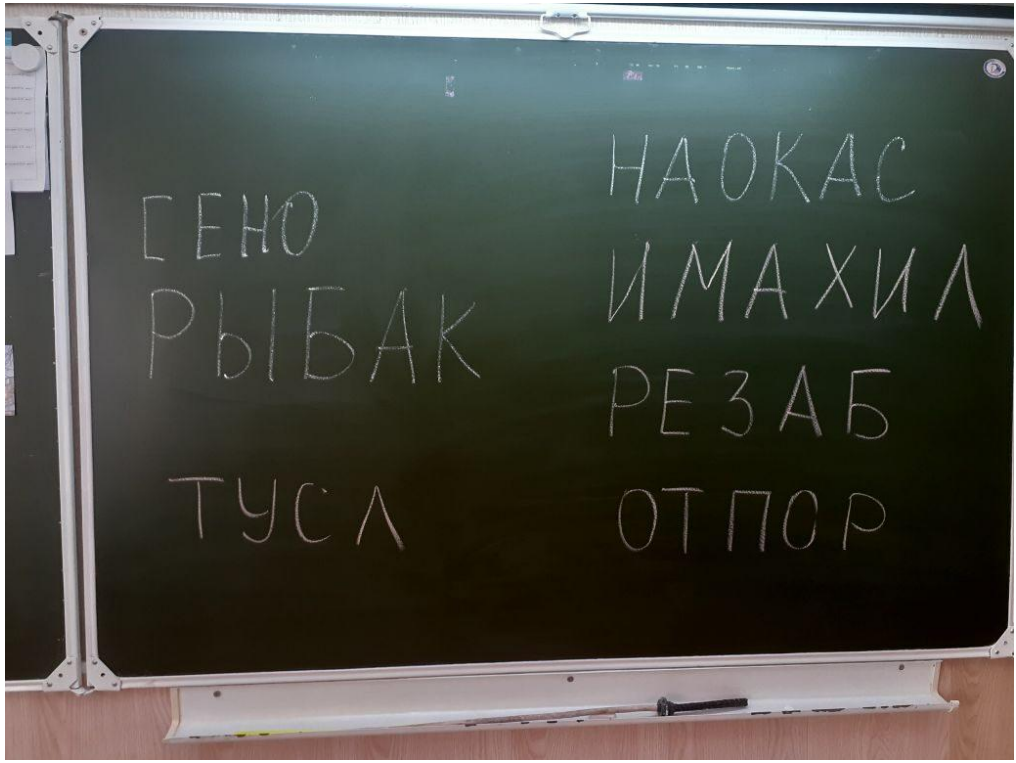 СЕНО
РЫБАК
ТУСЛ
НАОКАС
ИМАХИЛ
РЕЗАБ
ОТПОР